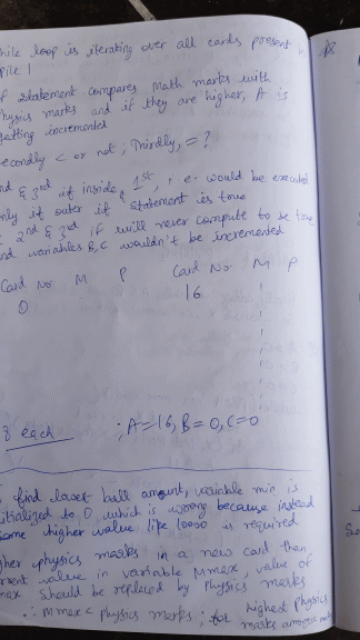 hile loop is iterating over all cards present in
pile 1
f statement compares Math marks with
Physics marks and if they are higher, A is
getting incremented
secondly < or not; Thirdly, = ?
nd & 3rd if inside 1st, i.e. would be executed
only if outer if statement is true
2nd & 3rd if will never compute to be true
nd variables B, C wouldn't be incremented
Card No. M P Card No. M P
0 16
8 each ; A=16, B=0, C=0
find lowest bill amount, variable min is
itialized to 0, which is wrong because instead
some higher value like 10000 is required
gher physics marks in a new card than
rrent value in variable Mmax, value of
max should be replaced by Physics marks
∴ Mmax < Physics marks; for highest Physics
marks among